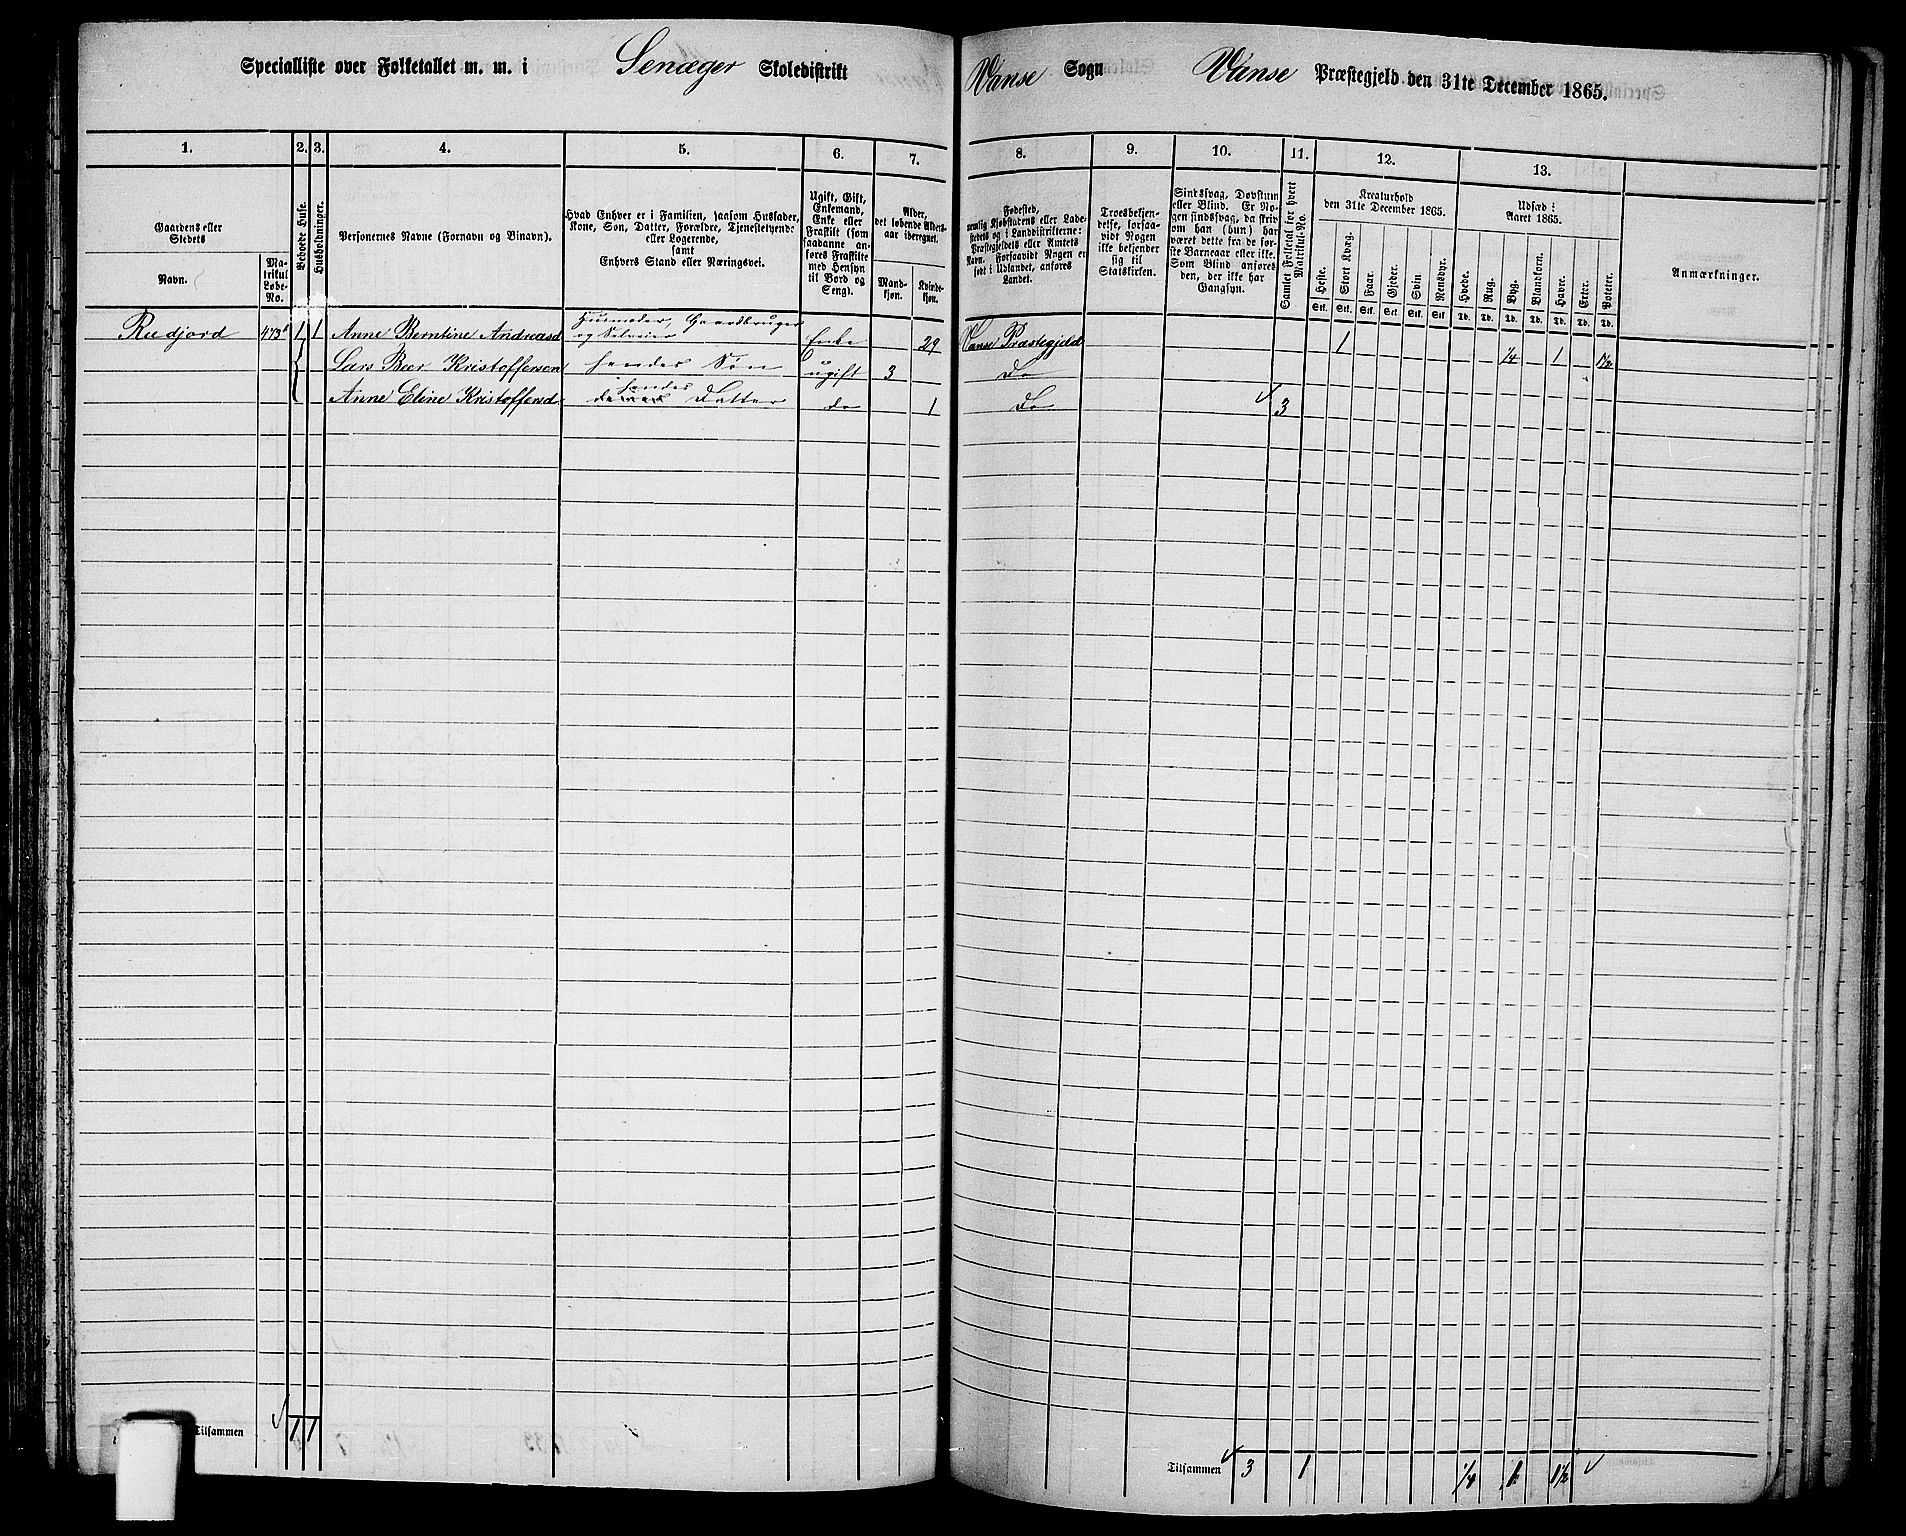 Specialliste over Folketallet m. m. i Senæger Skoledistrikt Vanse Sogn Vanse Præstegjeld den 31te December 1865.
1. 2. 3. 4. 5. 6. 7. 8. 9. 10. 11. 12. 13.
Gaardens eller Stedets
Navn.
Matrikul Løbe-No.
Beboede Huse.
Husholdninger.
Personernes Navne (Fornavn og Binavn).
Hvad Enhver er i Familien, saasom Husfader,
Kone, Søn, Datter, Forældre, Tjenestetyende
eller Logerende,
samt
Enhvers Stand eller Næringsvei.
Ugift, Gift,
Enkemand,
Enke eller
Fraskilt (som
saadanne an-
føres Fraskilte
med Hensyn
til Bord og
Seng).
Alder,
det løbende Alders-
aar iberegnet.
Mand-
kjøn.
Kvinde-
kjøn.
Fødested,
nemlig Kjøbstadens eller Lade-
stedets og i Landdistrikterne:
Præstegjeldets eller Amtets
Navn. Forsaavidt Nogen er
født i Udlandet, anføres
Landet.
Troesbekjen-
delse, forsaa-
vidt Nogen
ikke bekjender
sig til
Statskirken.
Sindssvag, Døvstum
eller Blind. Er No-
gen sindssvag, da skriv
om han (hun) har
været dette fra de før-
ste Barneaar eller ikke.
Som Blind anføres
den, der ikke har
Gangsyn.
Samlet Folketal for hvert Matrikul-No.
Kreaturhold
den 31te December 1865.
Heste.
Stort Kvæg.
Faar.
Gjeder.
Svin.
Rensdyr.
Stk. Stk. Stk. Stk. Stk. Stk.
Udsæd i
Aaret 1865.
Hvede.
Rug.
Byg.
Blandkorn.
Havre.
Erter.
Poteter.
Td. Td. Td. Td. Td. Td. Td.
Anmærkninger.
Rudjord 473 1 1 Anne Berntine Andreasd Husmoder, Gaardbruger og Selveier Enke 29 Vanse Præstegjeld 1 1/4 1 1 1/2
Lars Beer Kristoffersen hendes Søn ugift 3 Do
Anne Eline Kristoffersd hendes Datter do 1 Do 3
Tilsammen 1 1
Tilsammen 3 1 1/4 1 1 1/2